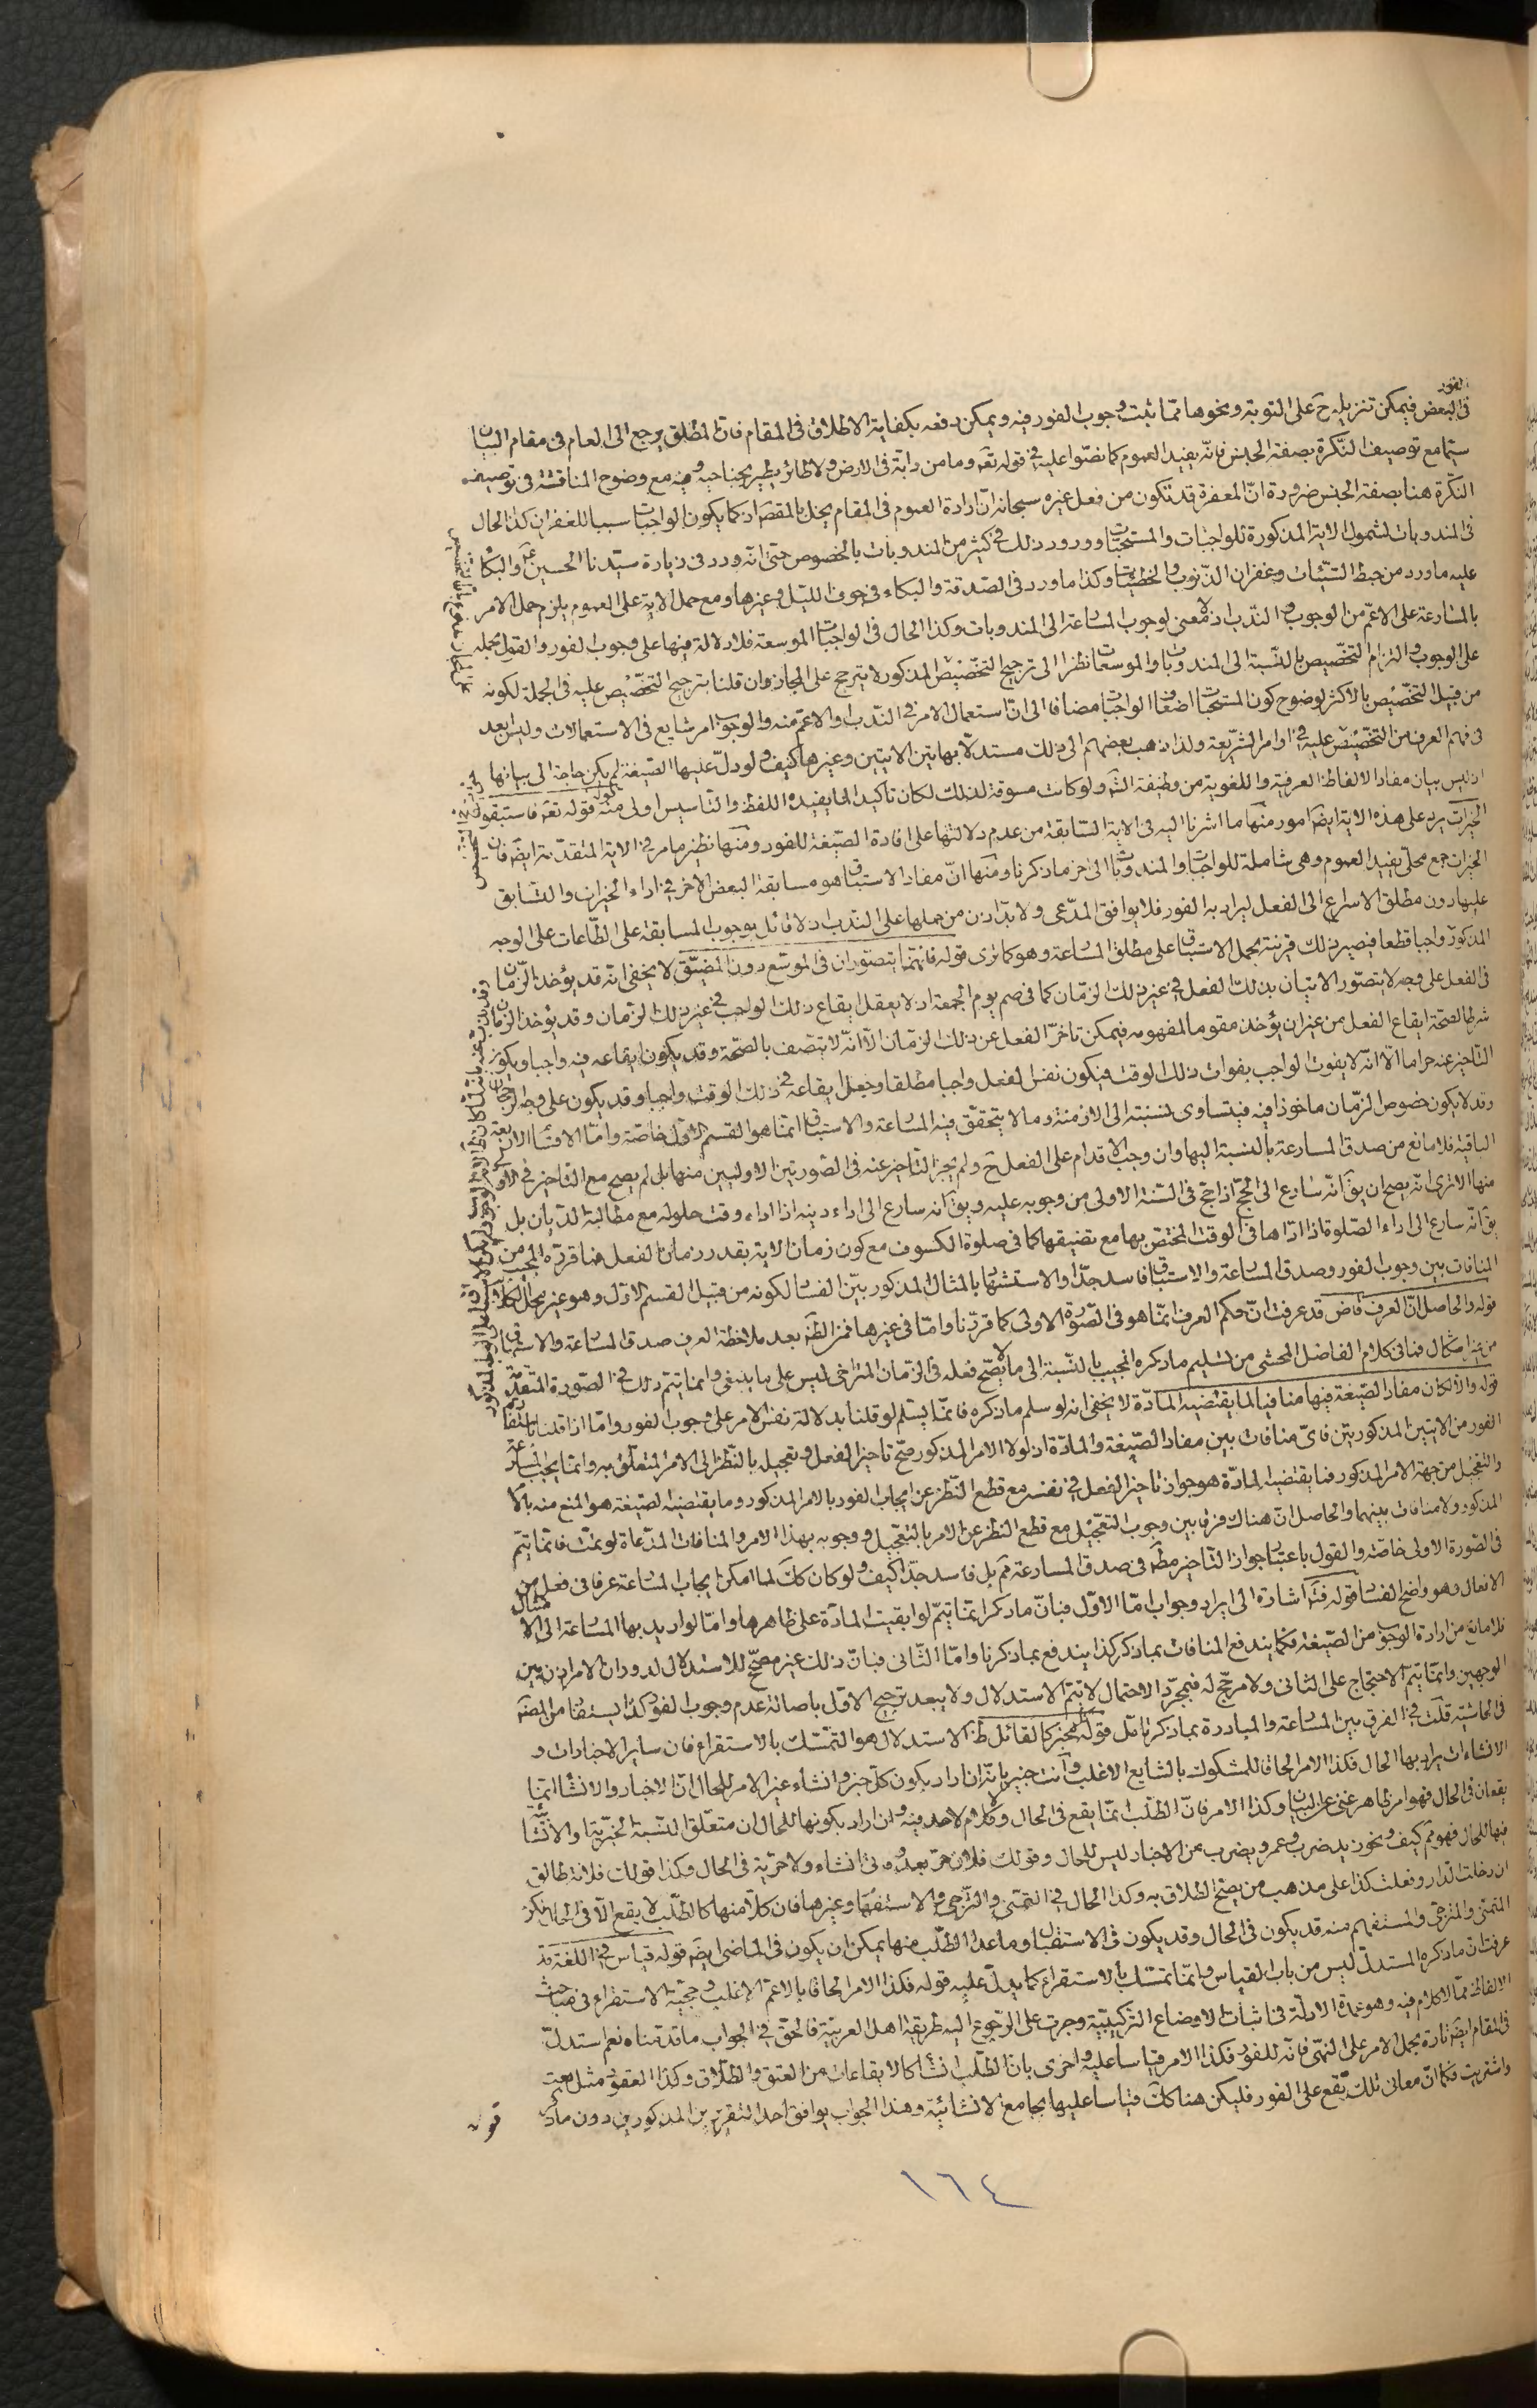 الفور
فى البعض فيمكن تنزيله ح على التوبة ونحوها ممّا ثبت وجوب الفور فيه ويمكن دفعه بكفاية الاطلاق فى المقام فانّ المطلق يرجع الى العام فى مقام البيان
سيّما مع توصيف النّكرة بصفة الجنس فانّه يفيد العموم كما نصّوا عليه فى قوله تعَ وما من دابّة فى الارض ولا طائر يطير بجناحيه وفيه مع وضوح المناقشة فى توصيف
النكرة هنا بصفة الجنس ضرورة انّ المغفرة قد تكون من فعل غيره سبحانه انّ ارادة العموم فى المقام يخلّ بالمقصَ اذ كما يكون الواجبات سببا للغفران كذا الحال
فى المندوبات لشمول الاية المذكورة للواجبات والمستحبّات وورود ذلك فى كثير من المندوبات بالخصوص حتّى انّه ورد فى زيارة سيّدنا الحسين ع والبكاء
عليه ماورد من حبط السّيّئات وغفران الذّنوب والخطيئات وكذا ماورد فى الصّدقة والبكاء فى جوف اللّيل وغيرها ومع حمل الاية على العموم يلزم حمل الامر
بالمسارعة على الاعمّ من الوجوب والنّدب اذ لا معنى لوجوب المسارعة الى المندوبات وكذا الحال فى الواجبات الموسعة فلا دلالة فيها على وجوب الفور والقول بحمله
على الوجوب والتزام التخصيص بالنّسبة الى المندوبات والموسعات نظرا الى ترجيح التخصيص المذكور لا يترجح على المجاز وان قلنا بترجيح التخصيص عليه فى الجملة لكونه
من قبيل التخصيص بالاكثر لوضوح كون المستحبات اضعاف الواجبات مضافا الى انّ استعمال الامر فى النّدب او الاعمّ منه والوجوب امر شايع فى الاستعمالات وليس بعد
فى فهم العرف من التخصيص عليه فى اوامر الشّريعة ولذا ذهب بعضهم الى ذلك مستدلّا بهاتين الايتين وغيرها كيف ولو دلّ عليها الصّيغة لم يكن حاجة الى بيانها
اذ ليس بيان مفاد الالفاظ العرفيّة واللغوية من وظيفة الشّ ولو كانت مسوقة لذلك لكان تاكيدا لما يفيده اللفظ والتّاسيس اولى منه قوله قوله تعَ فاستبقوا
الخيرات يرد على هذه الاية ايضَ امور منها ما اشرنا اليه فى الاية السّابقة من عدم دلالتها على افادة الصّيغة للفور ومنها نظير مامر فى الاية المتقدّمة ايضَ فان
الخيرات جمع محلّى يفيد العموم وهى شاملة للواجبات والمندوبات الى اخر ماذكرنا ومنها انّ مفاد الاستباق هو مسابقة البعض الاخر فى اداء الخيرات والتسابق
عليها دون مطلق الاسراع الى الفعل ليراد به الفور فلا يوافق المدّعى ولا بدّ اذن من حملها على النّدب اذ لا قائل بوجوب المسابقة على الطّاعات على الوجه
المذكور واجبا قطعا فيصير ذلك قرينة بحمل الاستباق على مطلق المسارعة وهو كما ترى قوله فانهما يتصوران فى الموسّع دون المضيّق لا يخفى انّه قد يؤخذ الزّمان
فى الفعل على وجه لا يتصوّر الاتيان بذلك الفعل فى غير ذلك الزّمان كما فى صم يوم الجمعة اذ لا يعقل ايقاع ذلك الواجب فى غير ذلك الزمان وقد يؤخذ الزمان
شرطا لصحّة ايقاع الفعل من غير ان يؤخذ مقوما لمفهومه فيمكن تاخّر الفعل عن ذلك الزمان الّا انّه لا يتّصف بالصّحّة وقد يكون ايقاعه فيه واجبا ويكون
التاخير عنه حراما الّا انّه لا يفوت الواجب بفوات ذلك الوقت فيكون نفس الفعل واجبا مطلقا وجعل ايقاعه فى ذلك الوقت واجبا وقد يكون على وجه الرجحان
وقد لا يكون خصوص الزّمان ماخوذا فيه فيتساوى نسبته الى الازمنة وما لا يتحقّق فيه المسارعة والاستباق انّما هو القسم الاوّل خاصّة وامّا الاقسام الاربعة
الباقية فلا مانع من صدق المسارعة بالنسبة اليها وان وجب الاقدام على الفعل ح ولم يجز التّاخير عنه فى الصّورتين الاوليين منها بل لم يصح مع التّاخير فى الاوّل
منها الا ترى انّه يصح ان يقَ انّه سارع الى الحجّ اذا حج فى السّنة الاولى من وجوبه عليه ويقَ انّه سارع الى اداء دينه اذا اداه وقت حلوله مع مطالبة الدّيان بل
يقَ انّه سارع الى اداء الصّلوة اذا ادّاها فى الوقت المختصّ بها مع تضيقها كما فى صلوة الكسوف مع كون زمان الاية بقدر زمان الفعل فما قرّره المجيب من
المنافات بين وجوب الفور وصدق المسارعة والاستباق فاسد جدّا والاستشهاد بالمثال المذكور بيّن الفساد لكونه من قبيل القسم الاوّل وهو غير محلّ الكلام
قوله والحاصل انّ العرف قاض قد عرفت انّ حكم العرف انّما هو فى الصّورة الاولى كما قرّرنا وامّا فى غيرها فمن الظّ بعد ملاحظة العرف صدق المسارعة والاستباق
من غير اشكال فما فى كلام الفاضل المحشى من تسليم ماذكره المجيب بالنّسبة الى ما لا يصّح فعله فى الزمان المتراخى ليس على ما ينبغى وانما يتم ذلك فى الصّورة المتقدّمة
قوله والّا لكان مفاد الصّيغة فيها منافيا لما يقتضيه المادّة لا يخفى انه لو سلم ماذكره فانّما يسلم لو قلنا بدلالة نفس الامر على وجوب الفور وامّا اذا قلنا باستفادة
الفور من الايتين المذكورتين فاىّ منافات بين مفاد الصّيغة والمادّة اذ لولا الامر المذكور صحّ تاخير الفعل وتعجيله بالنّظر الى الامر المتعلّق به وانّما يجب المسارعة
والتعجيل من جهة الامر المذكور فما يقتضيه المادّة هو جواز تاخير الفعل فى نفسه مع قطع النّظر عن ايجاب الفور بالامر المذكور وما يقتضيه الصّيغة هو المنع منه بالامر
المذكور ولا منافات بينهما والحاصل انّ هناك فرقا بين وجوب التعجيل مع قطع النظر عن الامر بالتعجيل ووجوبه بهذا الامر والمنافات المدّعاة لو تمّت فانّما يتمّ
فى الصّورة الاولى خاصّة والقول باعتبار جواز التاخير مطَ فى صدق المسارعة ثم بل فاسد جدّا كيف ولو كان ككَ لما امكن ايجاب المسارعة عرفا فى فعل من
الافعال وهو واضح الفساد قوله فتَ اشارة الى ايراد وجواب امّا الاوّل فبانّ ماذكر انّما يتمّ لو ابقيت المادّة على ظاهرها وامّا لو اريد بها المسارعة الى الامتثال
فلا مانع من ارادة الوجوب من الصّيغة فكما يندفع المنافات بما ذكر كذا يندفع بما ذكرنا وامّا الثّانى فبانّ ذلك غير مصحّح للاستدلال لدوران الامر اذن بين
الوجهين وانّما يتمّ الاحتجاج على الثانى ولا مرجّح له فبمجرّد الاحتمال لا يتم الاستدلال ولا يبعد ترجيح الاوّل باصالة عدم وجوب الفور كذا يستفاد من المصنّف
فى الحاشية قلت فى الفرق بين المسارعة والمبادرة بما ذكر تامّل قوله كل مخبر كالقائل ظَ الاستدلال هو التمسّك بالاستقراء فان ساير الاخبارات و
الانشاءات يراد بها الحال فكذا الامر الحاقا للمشكوك بالشايع الاغلب وانت خبير بانّه ان اراد بكون كلّ خبر وانشاء غير الامر للحال انّ الاخبار والانشاء انّما
يقعان فى الحال فهو امر ظاهر غنى عن البيان وكذا الامر فانّ الطّلب انّما يقع فى الحال ولا كلام لاحد فيه وان اراد بكونها للحال ان متعلّق النّسبة الخبريّة او الانشائيّة
فيها للحال فهو ثم كيف ونحو زيد ضرب وعمرو يضرب من الاخبار ليس للحال وقولك فلان حرّ بعد وفاتى انشاء ولا حرّية فى الحال وكذا قولك فلانة طالق
ان دخلت الدّار وفعلت كذا على مذهب من يصحّ الطلاق به وكذا الحال فى التمنّى والتّرجّى والاستفهام وغيرها فان كلّا منها كالطّلب لا يقع الّا فى الحال لكن
المتمنّى والمترجّى والمستفهم منه قد يكون فى الحال وقد يكون فى الاستقبال وما عدا الطّلب منها يمكن ان يكون فى الماضى ايضَ قوله قياس فى اللغة قد
عرفت انّ ماذكره المستدلّ ليس من باب القياس وانّما تمسّك بالاستقراء كما يدلّ عليه قوله فكذا الامر الحاقا بالاعمّ الاغلب وحجيّة الاستقراء فى مباحث
الالفاظ ممّا لا كلام فيه وهو عمدة الادلّة فى اثبات الاوضاع التّركيبيّة وجرت على الرّجوع اليه طريقة اهل العربيّة فالحقّ فى الجواب ما قدّمناه نعم استدلّ
فى المقام ايضَ تارة بحمل الامر على النّهى فانّه للفور فكذا الامر قياسا عليه واخرى بانّ الطّلب انشاء كالايقاعات من العتق والطّلاق وكذا العقود مثل بعت
واشتريت فكما انّ معانى تلك تقع على الفور فليكن هنا كك قياسا عليها بجامع الانشائيّة وهذا الجواب يوافق احد التقريرين المذكورين دون ماذكر
١٦٤